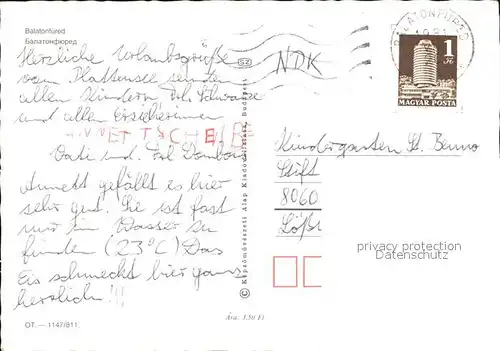 Balatonfüred
Балатонфюред
Herzliche Urlaubsgrüße
vom Plattensee senden
allen Kindern Frl. Schwarze
und allen Erzieherinnen
ANNETT SCHEIBE
Vati und
Annett gefällt es hier
sehr gut. Sie ist fast
nur im Wasser zu
finden (23°C) Das
Eis schmeckt hier ganz
herrlich!!!
OT. — 1147/811
SZ
© Képzőművészeti Alap Kiadóvállalata, Budapest
Ára: 3.50 Ft
NDK
BALATONFÜRED
1 Ft
MAGYAR POSTA
Kindergarten St. Benno
Stift
8060
privacy protection
Datenschutz